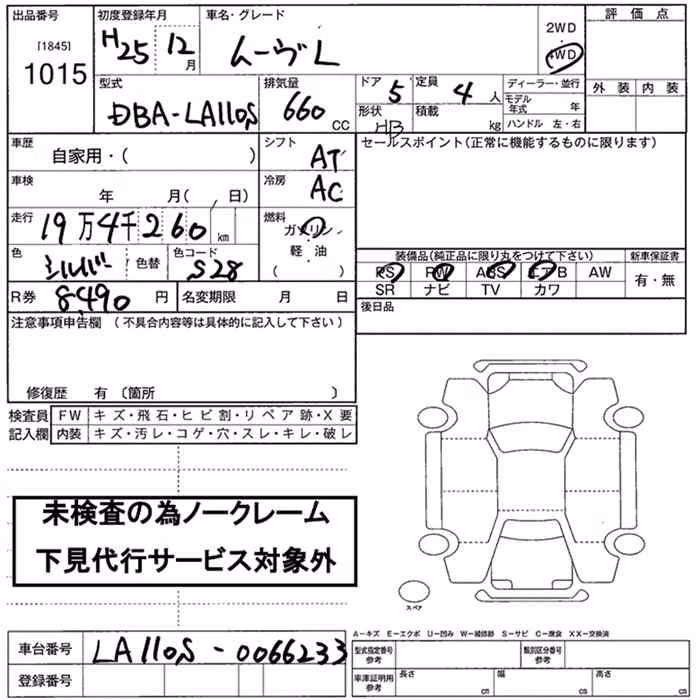 出品番号 初度登録年月 車名・グレード 評価点
[1845] H25 12月 ムーヴL 2WD
1015 4WD
型式 排気量 ドア 5 定員 4人 ディーラー・並行 外装 内装
DBA-LA110S 660CC 形状 HB 積載 kg モデル年式 年
ハンドル 左・右
車歴 シフト セールスポイント(正常に機能するものに限ります)
自家用・( ) AT
車検 冷房
年 月( / 日) AC
走行 燃料
19万4千260km ガソリン
軽油
( )
色 シルバー 色替 色コード S28
装備品(純正品に限り丸をつけて下さい) 新車保証書
PS PW ABS エアB AW 有・無
SR ナビ TV カワ
R券 8,490円 名変期限 月 日
後日品
注意事項申告欄(不具合内容等は具体的に記入して下さい)
修復歴 有〔箇所 〕
検査員 FW キズ・飛石・ヒビ割・リペア跡・X要
記入欄 内装 キズ・汚レ・コゲ・穴・スレ・キレ・破レ
未検査の為ノークレーム
下見代行サービス対象外
スペア
A−キズ E−エクボ U−凹み W−補修跡 S−サビ C−腐食 XX−交換済
車台番号 LA110S-0066233
型式指定番号 参考 類別区分番号 参考
登録番号
車庫証明用 参考 長さ cm 幅 cm 高さ cm